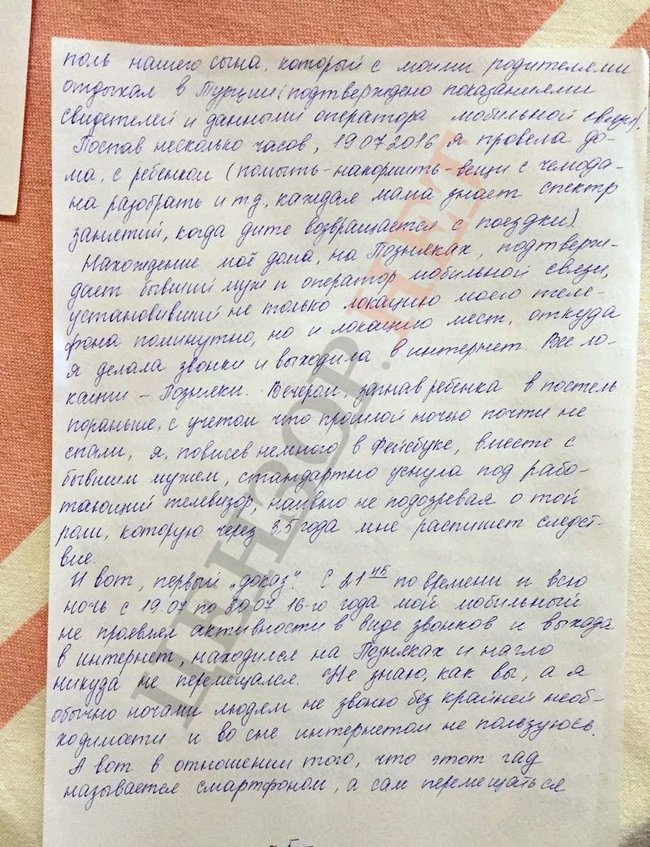 поль нашего сына, который с моими родителями
отдыхал в Турции (подтверждено показаниями
свидетелей и данными оператора мобильной связи).
Поспав несколько часов, 19.07.2016 я провела до-
ма, с ребенком (помыть-накормить-вещи с чемода-
на разобрать и тд, каждая мама знает спектр
занятий, когда дите возвращается с поездки).
Нахождение моё дома, на Позняках, подтверж-
дает бывший муж и оператор мобильной связи,
установивший не только локацию моего теле-
фона поминутно, но и локацию мест, откуда
я делала звонки и выходила в интернет. Все ло-
кации - Позняки. Вечером, загнав ребенка в постель
пораньше, с учетом что прошлой ночью почти не
спали, я, повисев немного в Фейсбуке, вместе с
бывшим мужем, стандартно уснула под рабо-
тающий телевизор, наивно не подозревая о той
роли, которую через 3.5 года мне распишет следст-
вие.
И вот, первый „доказ". С 21 45 по времени и всю
ночь с 19.07 по 20.07 16-го года мой мобильный
не проявлял активности в виде звонков и выхода
в интернет, находился на Позняках и нагло
никуда не перемещался. Не знаю, как вы, а я
обычно ночами людям не звоню без крайней необ-
ходимости и во сне интернетом не пользуюсь.
А вот в отношении того, что этот гад
называется смартфоном, а сам перемещаться
- 5 -
ЦЕНЗОР.НЕТ